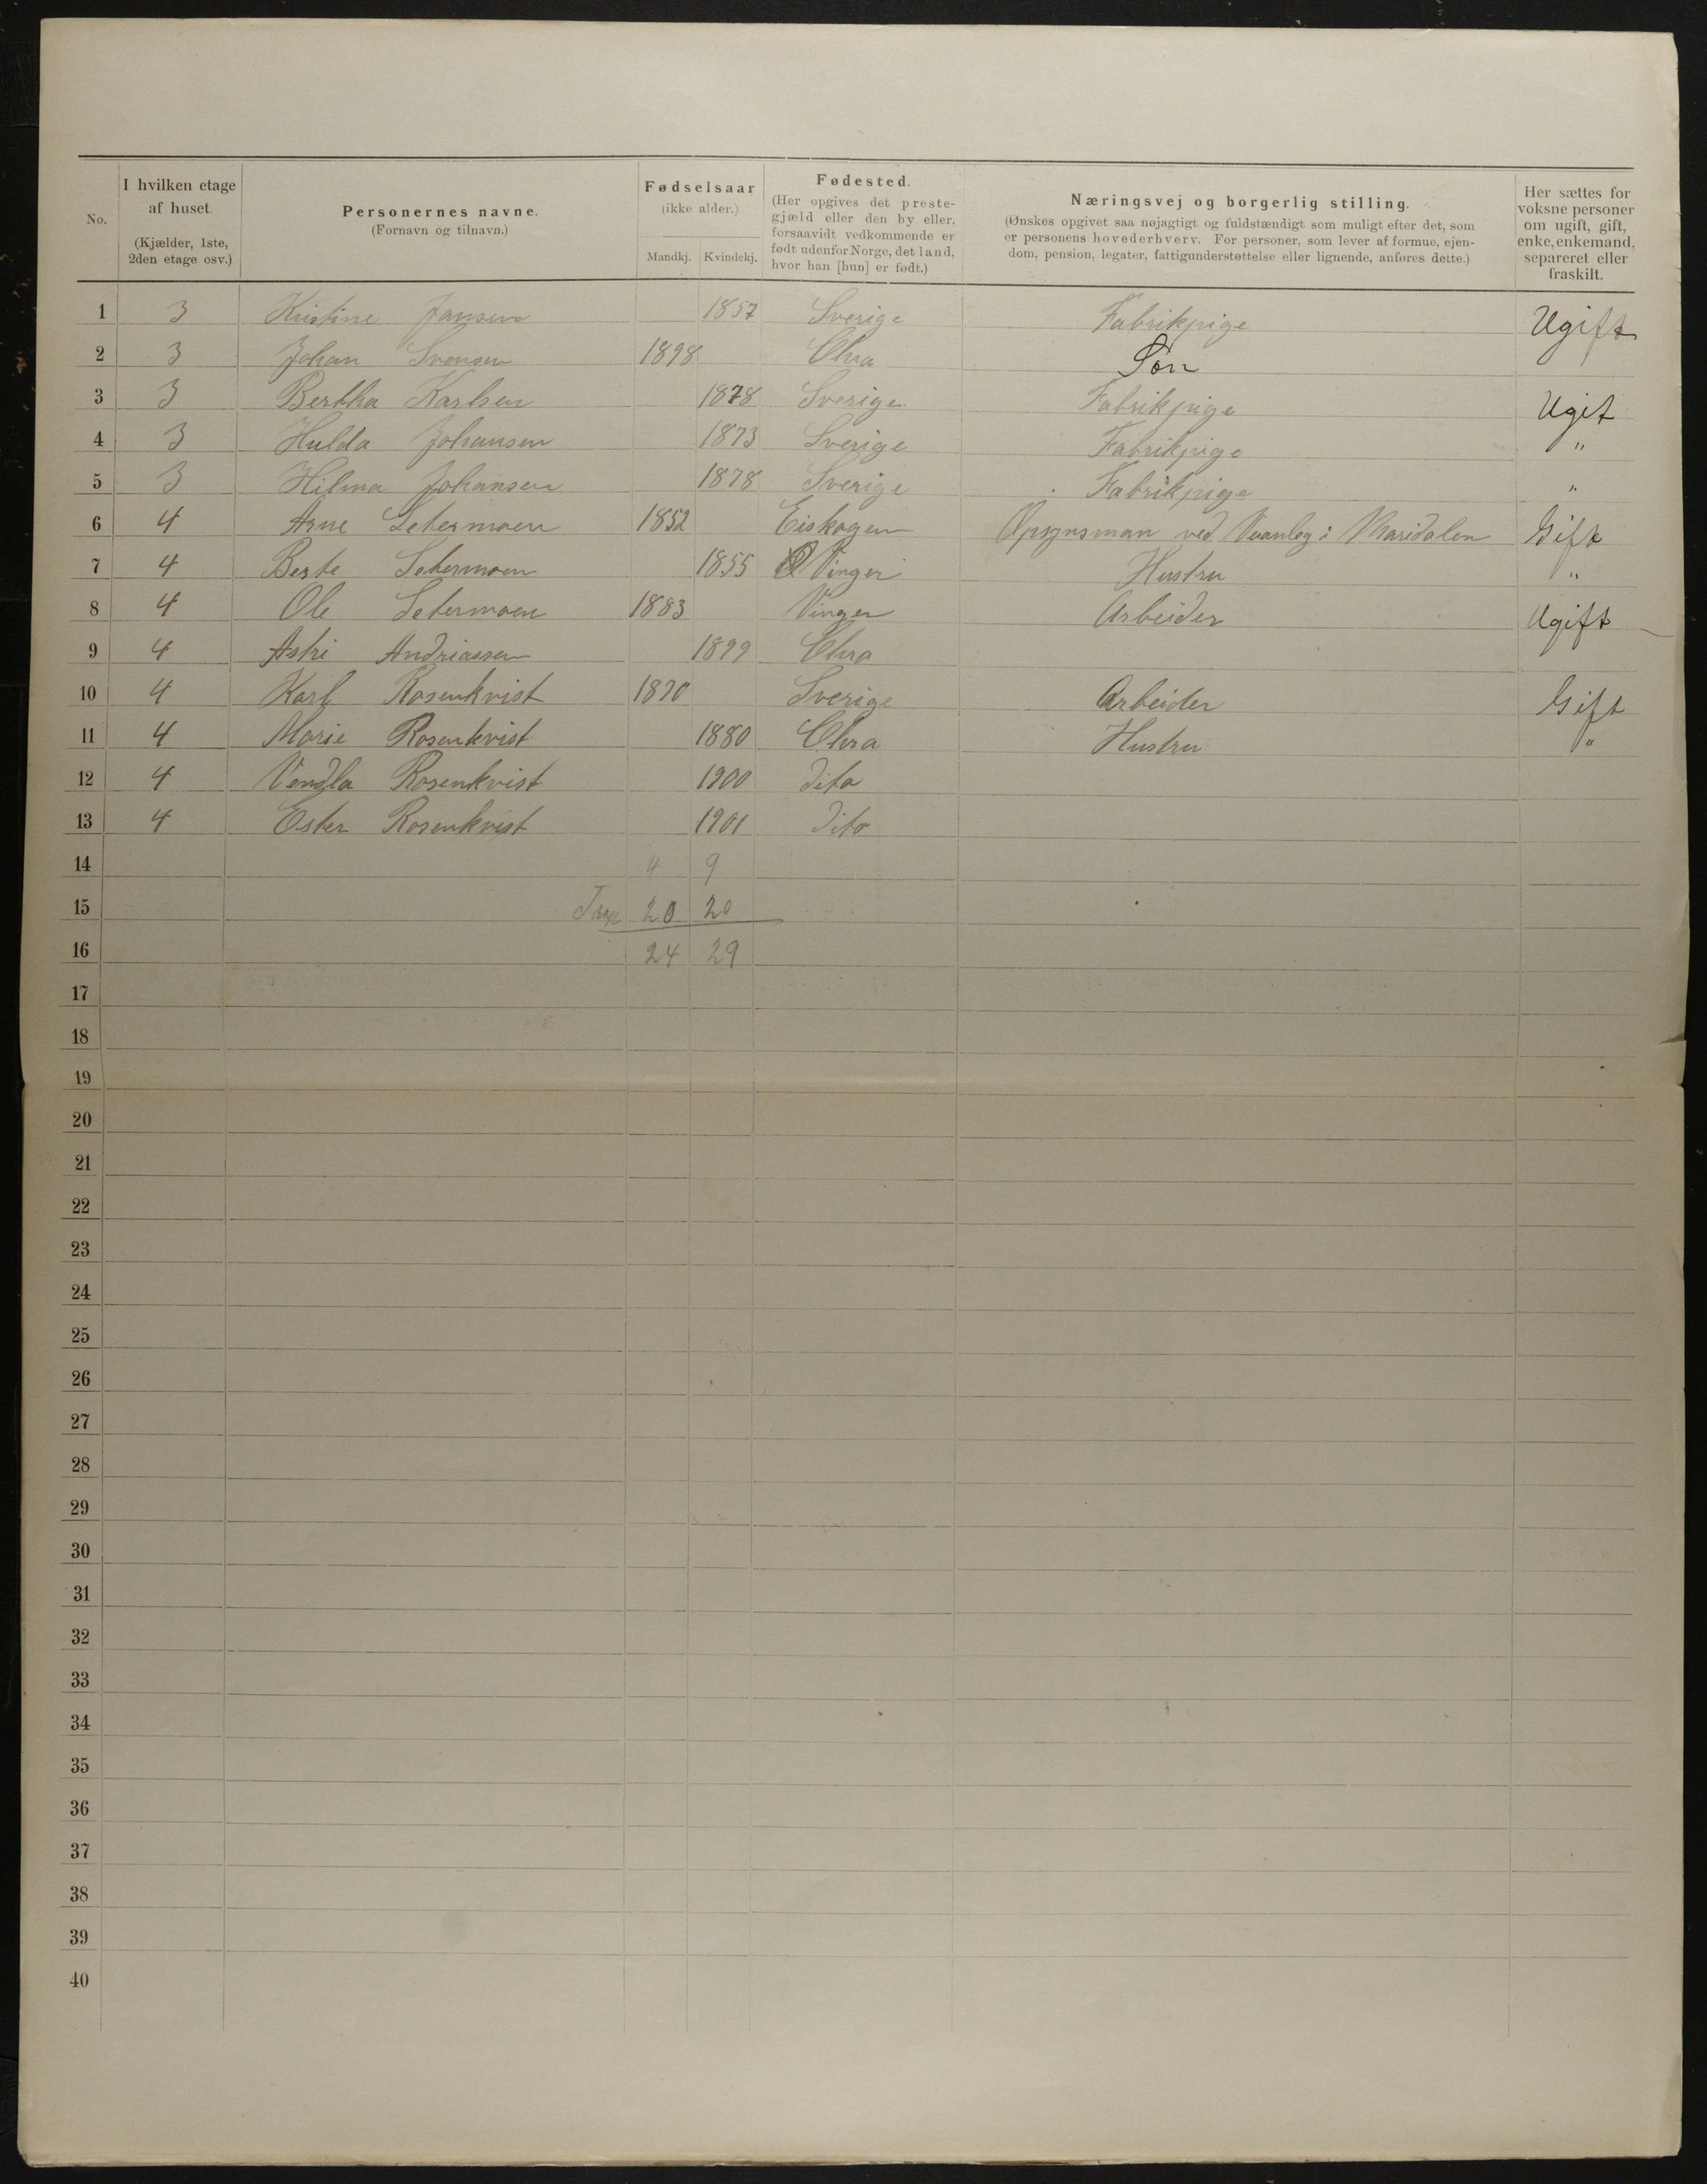 No.
I hvilken etage af huset.
(Kjælder, 1ste, 2den etage osv.)
Personernes navne.
(Fornavn og tilnavn.)
Fødselsaar
(ikke alder.)
Mandkj. Kvindekj.
Fødested.
(Her opgives det prestegjæld eller den by eller, forsaavidt vedkommende er født udenfor Norge, det land, hvor han [hun] er født.)
Næringsvej og borgerlig stilling.
(Ønskes opgivet saa nøjagtigt og fuldstændigt som muligt efter det, som er personens hovederhverv. For personer, som lever af formue, ejendom, pension, legater, fattigunderstøttelse eller lignende, anføres dette.)
Her sættes for voksne personer om ugift, gift, enke, enkemand, separeret eller fraskilt.
1 3 Kristine Jansen 1857 Sverige Fabrikpige Ugift
2 3 Johan Svensen 1898 Chra Søn
3 3 Bertha Karlsen 1878 Sverige Fabrikpige Ugit
4 3 Hulda Johansen 1873 Sverige Fabrikpige "
5 3 Hilma Johansen 1878 Sverige Fabrikpige "
6 4 Arne Setermoen 1852 Eiskogen Opsynsman ved Maridalen Gift
7 4 Berte Setermoen 1855 Vinger Hustru "
8 4 Ole Setermoen 1883 Vinger Arbeider Ugift
9 4 Astri Andriassen 1899 Chra
10 4 Karl Rosenkvist 1870 Sverige Arbeider Gift
11 4 Marie Rosenkvist 1880 Chra Hustru "
12 4 Vendla Rosenkvist 1900 Dito
13 4 Ester Rosenkvist 1901 Dito
14 4 9
15 20 20
16 24 29
17
18
19
20
21
22
23
24
25
26
27
28
29
30
31
32
33
34
35
36
37
38
39
40